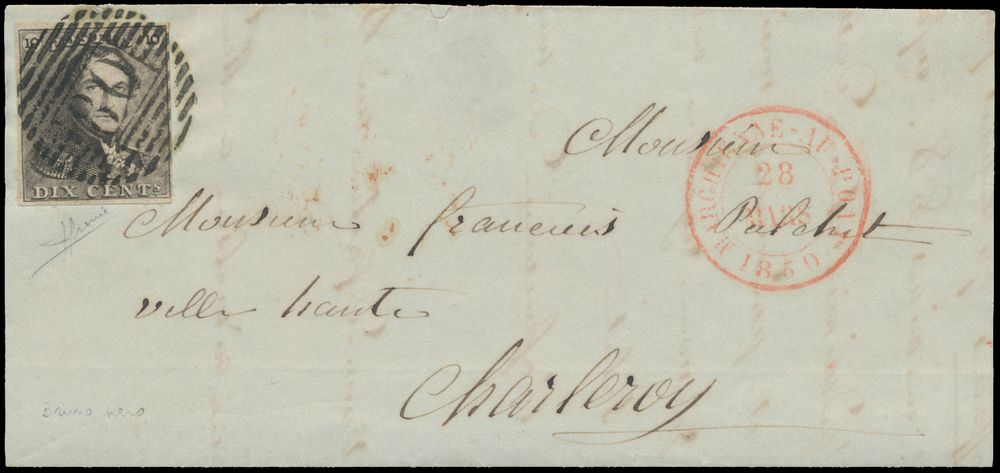 10 POSTES 10
DIX CENTS
Monsieur
MARCHIENNE-AU-PONT
28
MARS
1850
Monsieur francois Pulchet
ville haute
Charleroy
Bruno nero